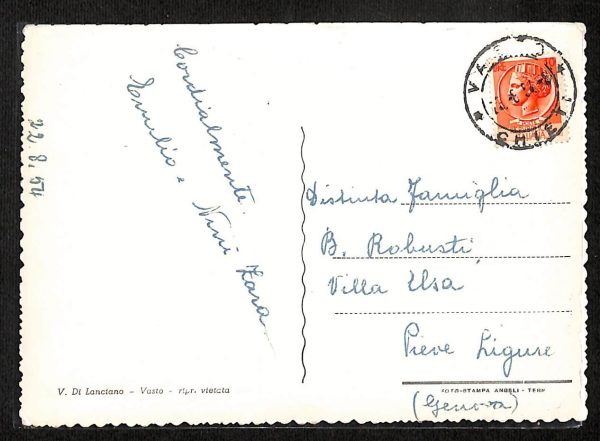 22.8.54
Cordialmente.
Emilio e Nini Zara
VASTO
CHIETI
Distinta Famiglia
B. Robusti
Villa Elsa
Pieve Ligure
(Genova)
V. Di Lanciano - Vasto - ripr. vietata
FOTO-STAMPA ANGELI - TERNI